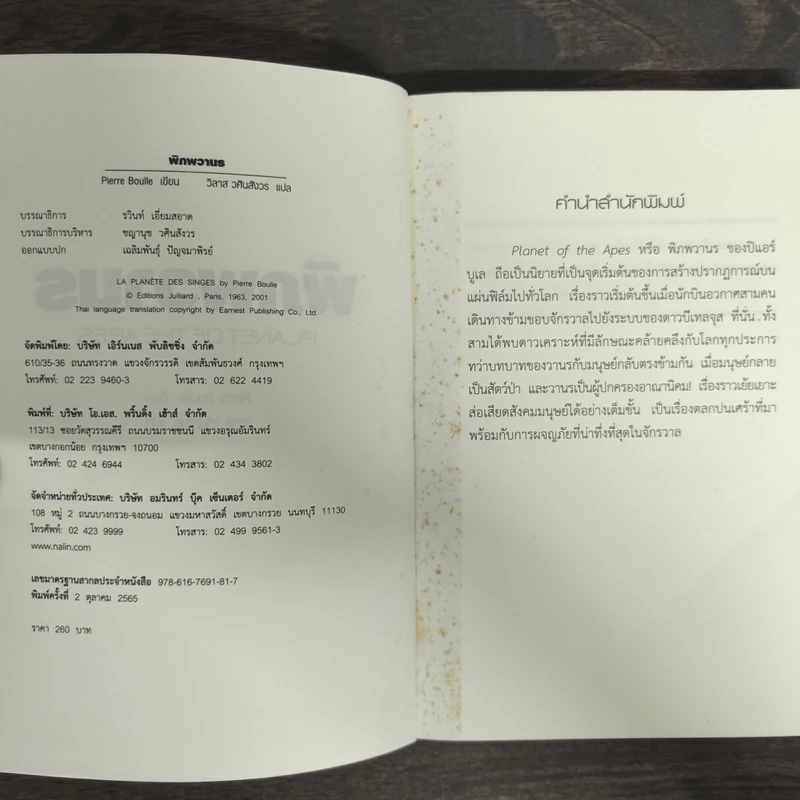 พิภพวานร
Pierre Boulle เขียน วิลาส วศินสังวร แปล
บรรณาธิการ รวินท์ เอี่ยมสอาด
บรรณาธิการบริหาร ชญานุช วศินสังวร
ออกแบบปก เฉลิมพันธุ์ ปัญจมาพิรย์
LA PLANÈTE DES SINGES by Pierre Boulle
© Editions Julliard , Paris, 1963, 2001
Thai language translation copyright by Earnest Publishing Co., Ltd.
จัดพิมพ์โดย: บริษัท เอิร์นเนส พับลิชชิ่ง จำกัด
610/35-36 ถนนทรงวาด แขวงจักรวรรดิ เขตสัมพันธวงศ์ กรุงเทพฯ
โทรศัพท์: 02 223 9460-3 โทรสาร: 02 622 4419
พิมพ์ที่: บริษัท โอ.เอส. พริ้นติ้ง เฮ้าส์ จำกัด
113/13 ซอยวัดสุวรรณคีรี ถนนบรมราชชนนี แขวงอรุณอัมรินทร์
เขตบางกอกน้อย กรุงเทพฯ 10700
โทรศัพท์: 02 424 6944 โทรสาร: 02 434 3802
จัดจำหน่ายทั่วประเทศ: บริษัท อมรินทร์ บุ๊ค เซ็นเตอร์ จำกัด
108 หมู่ 2 ถนนบางกรวย-จงถนอม แขวงมหาสวัสดิ์ เขตบางกรวย นนทบุรี 11130
โทรศัพท์: 02 423 9999 โทรสาร: 02 499 9561-3
www.naiin.com
เลขมาตรฐานสากลประจำหนังสือ 978-616-7691-81-7
พิมพ์ครั้งที่ 2 ตุลาคม 2565
ราคา 260 บาท
คำนำสำนักพิมพ์
Planet of the Apes หรือ พิภพวานร ของปิแอร์
บูเล ถือเป็นนิยายที่เป็นจุดเริ่มต้นของการสร้างปรากฏการณ์บน
แผ่นฟิล์มไปทั่วโลก เรื่องราวเริ่มต้นขึ้นเมื่อนักบินอวกาศสามคน
เดินทางข้ามขอบจักรวาลไปยังระบบของดาวบีเทลจุส ที่นั่น ทั้ง
สามได้พบดาวเคราะห์ที่มีลักษณะคล้ายคลึงกับโลกทุกประการ
ทว่าบทบาทของวานรกับมนุษย์กลับตรงข้ามกัน เมื่อมนุษย์กลาย
เป็นสัตว์ป่า และวานรเป็นผู้ปกครองอาณานิคม! เรื่องราวเย้ยเยาะ
ส่อเสียดสังคมมนุษย์ได้อย่างเต็มขั้น เป็นเรื่องตลกปนเศร้าที่มา
พร้อมกับการผจญภัยที่น่าทึ่งที่สุดในจักรวาล